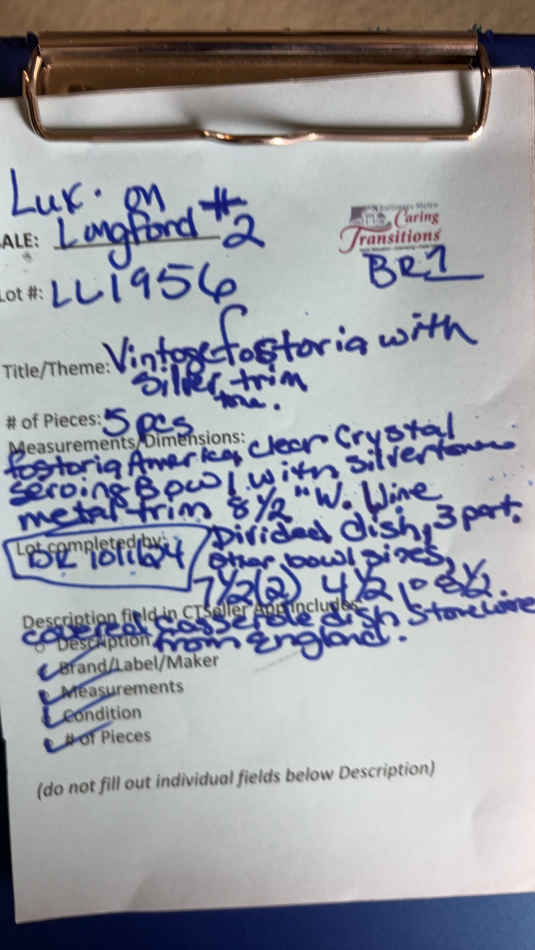 Lux. on
ALE: Longford #2
Caring
Transitions
BR1
Lot #: LL1956
Title/Theme: Vintage fostoria with
silver trim
tone.
# of Pieces: 5 pcs
Measurements/Dimensions:
fostoria America, clear Crystal
Bowl with silvertone
metal trim 8 1/2 "W. Wine
Divided dish, 3 part.
Lot completed by:
other bowl sizes,
7 1/2 (2) 4 1/2
Description field in CTSeller App Includes:
covered Casserole dish Stoneware
Description
from England.
Brand/Label/Maker
Measurements
Condition
# of Pieces
(do not fill out individual fields below Description)